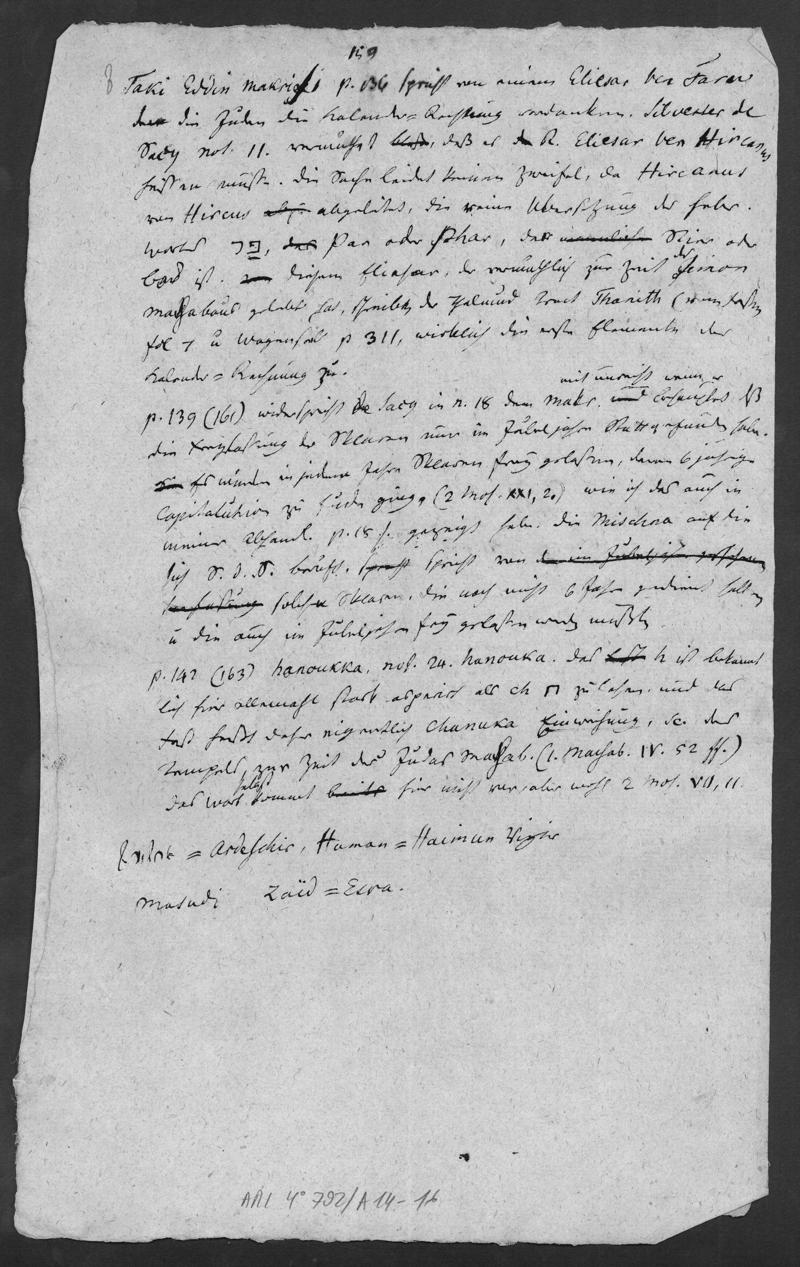 159
8 Taki Eddin Makrizi's p. 136 spricht von einem Eliesar ben Farua
dem die Juden die Kalender=Rechnung verdanken. Silvester de
Sacy not. 11. vermuthet daß es R. Eliesar ben Hircanus
heissen müsse. die Sache leidet keinen Zweifel, da Hircanus
von Hircus abgeleitet, die reine Übersetzung des hebr.
Wortes פר, Par oder Phar, der Stier oder
Bock ist. diesem Eliesar, der vermuthlich zur Zeit des Simon
Makabäus gelebt hat, schreibt der Talmud tract Thanith
fol 7 u Wagenseil p 311, wirklich die erste Elemente der
Kalender=Rechnung zu.
mit unrecht wenn er
p. 139 (161) widerspricht de Sacy in n. 18 dem Makr. behauptet daß
die Freylassung der Sklaven nur im Jubeljahre Statt gefunden habe.
Es wurden in jedem Jahre Sklaven frey gelassen, deren 6 jährige
Capitulation zu Ende ging, (2 Mos. XXI, 2.) wie ich das auch in
meiner Abhandl. p. 18 f. gezeigt habe. die Mischna auf die
sich S. d. S. beruft, spricht von
solchen Sklaven, die noch nicht 6 Jahre gedient hatten
u die auch im Jubeljahre frey gelassen werden mußten
p. 142 (163) hanoukka, not. 24. hanouka. das h ist bekannt
lich hier allemahl stark aspirirt als ch ח zu lesen. und das
Fest heißt daher eigentlich Chanuka Einweihung, sc. des
Tempels zur Zeit des Judas Makab. (1. Makab. IV. 52 ff.)
selbst
das Wort kommt hier nicht vor, aber wohl 2 Mos. VII, 11.
= Ardeschir, Haman = Haimun Vizir
Masudi Zaïd = Esra.
ARI 4° 792/A 14-16